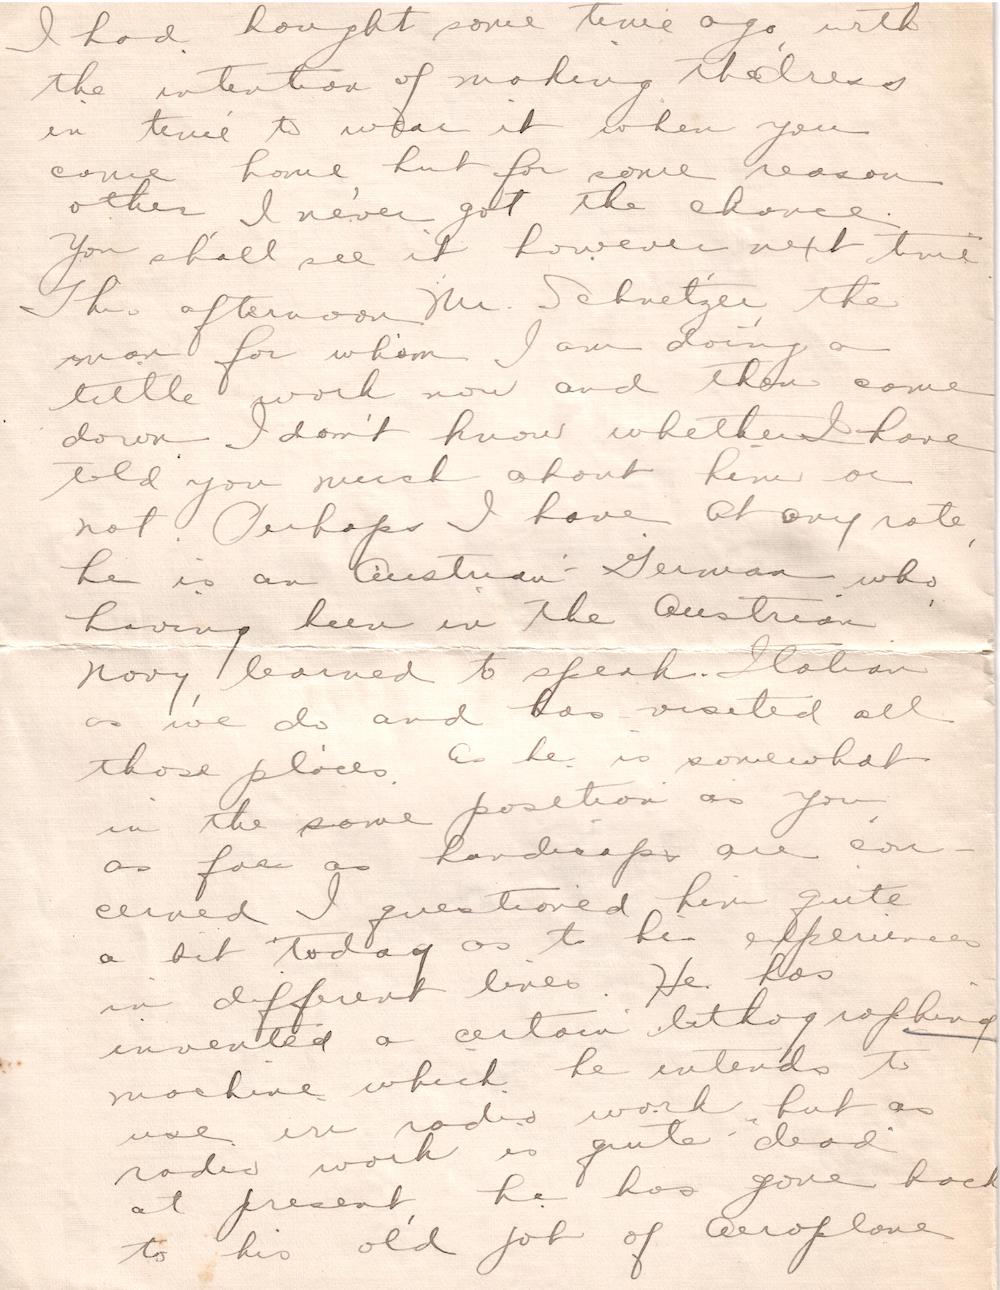 I had bought some time ago, with
the intention of making the dress
in time to wear it when you
came home but for some reason
other I never got the chance.
You shall see it however next time.
This afternoon Mr. Schnetzer, the
man for whom I am doing a
little work now and then came
down I don't know whether I have
told you much about him or
not. Perhaps I have At any rate,
he is an Austrian-German who,
having been in the Austrian
Navy, learned to speak Italian
as we do and has visited all
those places. As he is somewhat
in the same position as you
as far as handicaps are con-
cerned I questioned him quite
a bit today as to his experiences
in different lines. He has
invented a certain lithographing
machine which he intends to
use in radio work but as
radio work is quite "dead"
at present, he has gone back
to his old job of aeroplane